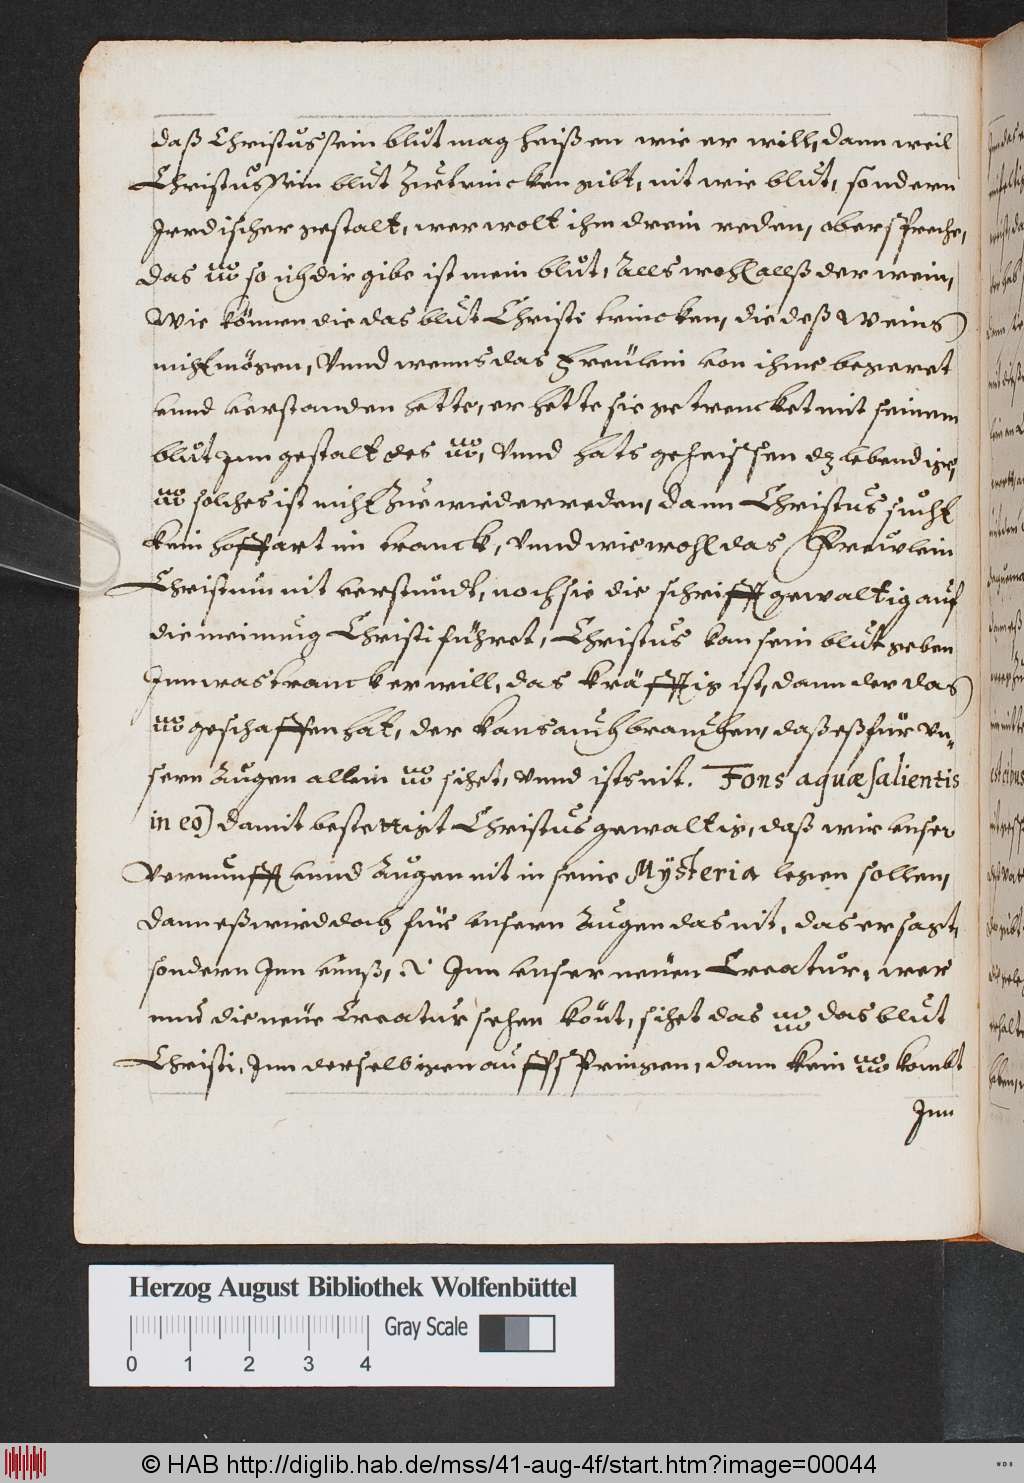 daß Christus sein blut mag heißen wie er will, dann weil
Christus sein blut Zuetrincken gibt, nit wie blut, sondern
Irrdischer gestalt, wer wolt ihm drein reden, ober spreche,
das so ich dir gibe ist mein blut, Alls wohl allß der wein,
Wie können die das blut Christi trincken, die deß Weins
nicht mögen, Vnnd wenns das Freülein von ihme begeret
vnnd verstanden hette, er hette sie getrencket mit seinem
blut Inn gestalt des, Vnnd hats geheissen dz lebendige,
solches ist nicht Zue wiederreden, dann Christus sucht
kein hoffart im tranck, Vnnd wiewohl das Frewlein
Christum nit verstundt, noch sie die schrifft gewaltig auf
die meinung Christi führet, Christus kan sein blut geben
Inn was tranck er will, das kräfftig ist, dann der das
geschaffen hat, der kans auch brauchen, daß eß für Vn-
sern Augen allein sihet, Vnnd ists nit. Fons aquæ salientis
in eo) damit bestettigt Christus gewaltig, daß wir vnser
Vernunfft vnnd Augen nit in seine Mysteria legen sollen,
dann eß wird doch für vnsern Augen das nit, das er sagt,
sondern Inn vnnß, Inn vnser neüen Creatur, wer
nun die neüe Creatur sehen könt, sihet das das blut
Christi, Inn derselbigen auffspringen, dann kein kombt
Inn
Herzog August Bibliothek Wolfenbüttel
Gray Scale
0 1 2 3 4
© HAB http://diglib.hab.de/mss/41-aug-4f/start.htm?image=00044